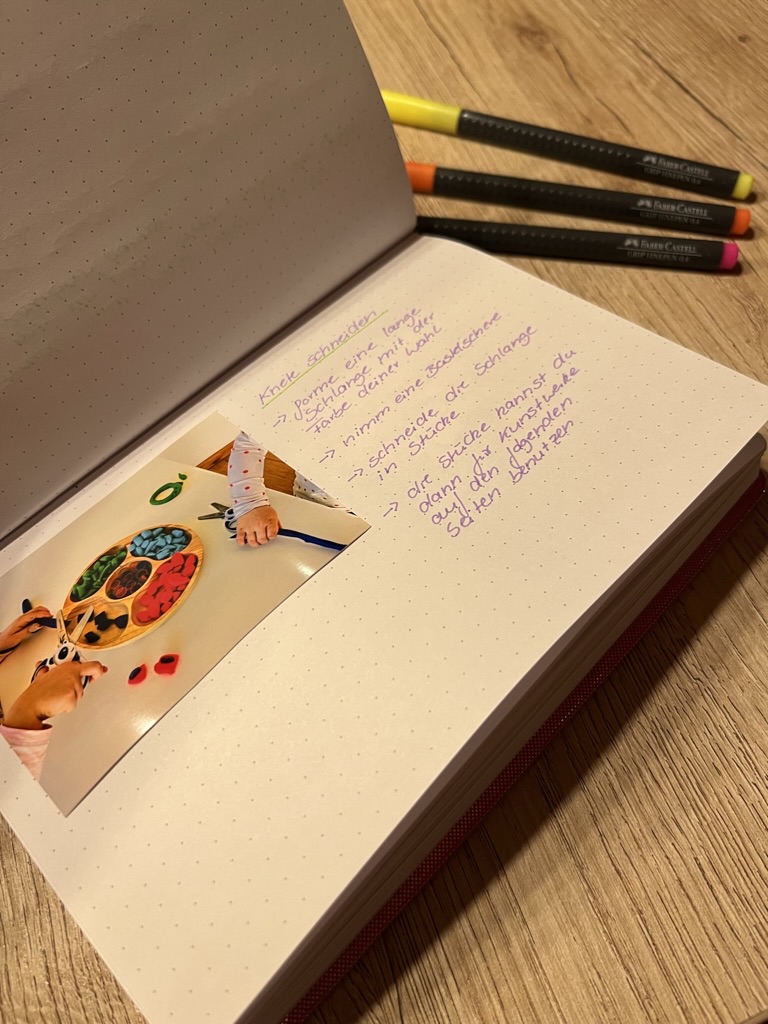 Knete schneiden
-> forme eine lange
Schlange mit der
Farbe deiner Wahl
-> nimm eine Bastelschere
-> schneide die Schlange
in Stücke
-> die Stücke kannst du
dann für Kunstwerke
auf den folgenden
Seiten benutzen
FABER CASTELL
GRIP FINEPEN 0.4
FABER CASTELL
GRIP FINEPEN 0.4
FABER CASTELL
GRIP FINEPEN 0.4